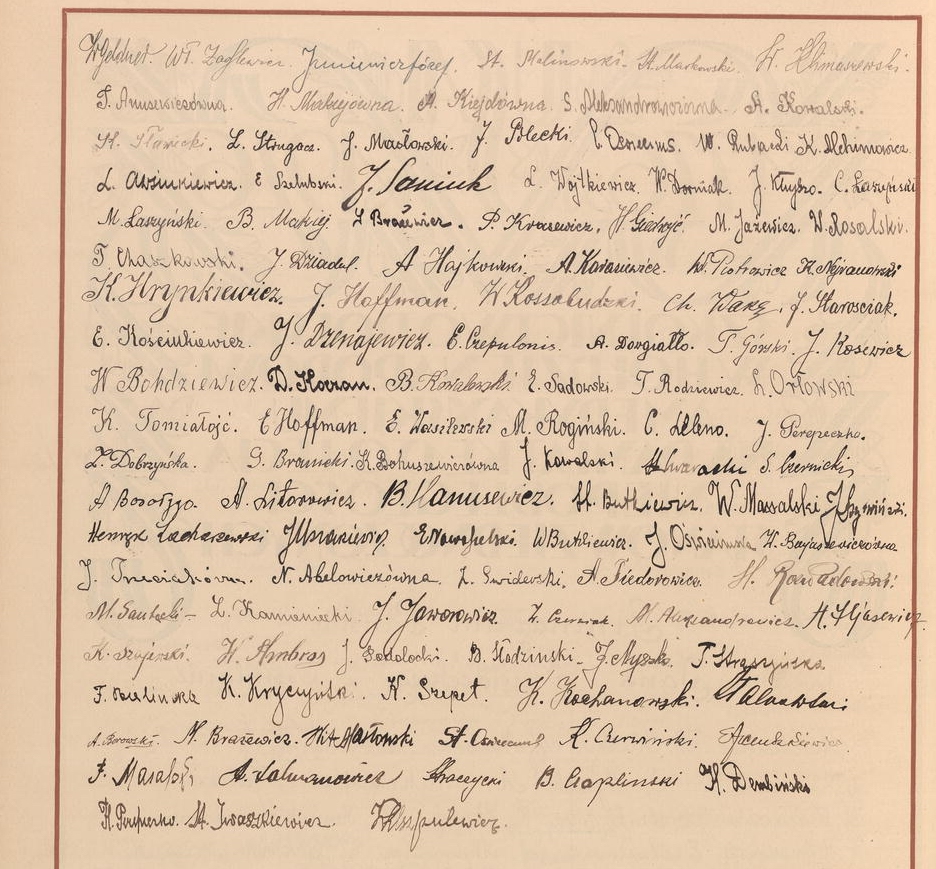 W. Geldner. Wł. Zagłewicz. Juniewicz Józef. St. Malinowski. St. Markowski. W. Chmarzewski.
T. Anusewiczówna. H. Maciejówna. A. Kiejdówna. S. Aleksandrowiczówna. A. Kowalski.
St. Sławicki. L. Strugacz. J. Masłowski. J. Plecki. W. Rubacki K. Klchimowicz
L. Awżukiewicz. E Szełubski. J. Janiuk L. Wojtkiewicz. W. Dorniak. J. Kłyszo. C. Łaszyński
M. Łaszyński. B. Makiej. L Brażewicz. P. Krasewicz. H. Giedryć. M. Jażewicz. W. Rosalski.
T. Ckaszkowski. J. Dziadel. A Hajkowski. A. Karasiewicz. W. Piotrowicz K. Niewiandowski
K. Hrynkiewicz. J. Hoffman. W Kossobudzki. Ch. Warg. J. Starosciak.
E. Kościukiewicz. J. Dzenajewicz. E. Czepulonis. A. Dowgiałło. T. Górski. J. Kosewicz
W Bohdziewicz. D. Korzan. B. Kowalewski E. Sadowski. T. Rodziewicz. L. Orłowski
K. Tomiałojć. E Hoffman. E. Wasilewski M. Rogiński. C. Lleno. J. Perepeczko.
Z. Dobrzyńska. G. Branicki. K. Bohuszewiczówna J. Kowalski. S. Czernicki
A Bosołygo. A. Litorowicz. B. Hanusewicz. St. Butkiewicz. W. Massalski J. Szywiński.
Henryk Zacharzewski E. Nowopolski. W Butkiewicz. J. Oświecimska W. Bayaszewiczówna
J. Trzeciakówna. N. Abelowiczówna. Z. Gwidewski. A. Fiedorowicz. H. Romanowski
M. Sautycki - L. Kamieniecki J. Jaworowicz. Z. Czerniak. M. Aleksandrowicz. A. Hjasewicz.
K. Szyjerski. W. Ambros J. Podolocki. B. Chodzinski. J. Myszko. T. Straszyńska.
F. Malinska K. Kryczyński. N. Szepet. K. Kochanowski.
A. Borowski. M. Brażewicz. Wit Masłowski St. Oswiecimski K. Czerwiński.
F. Masalski A. Salmanowicz Kraczycki B. Czaplinski H. Dembiński
R. Perepeczko. St. Iwaszkiewicz.